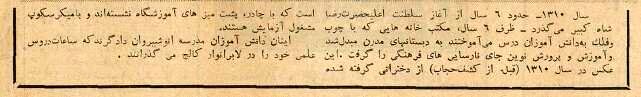 سال ۱۳۱۰ــ حدود ۶ سال از آغاز سلطنت اعلیحضرت رضا
شاه کبیر می‌گذرد ــ ظرف ۶ سال، مکتب خانه هایی که با چوب
وفلك به‌دانش آموزان درس می‌آموختند به دبستانهای مدرن مبدل‌شد
وآموزش و پرورش نوین جای نارسایی های فرهنگی را گرفت .این
عکس در سال ۱۳۱۰ (قبل از کشف‌حجاب) از دخترانی گرفته شده
است که با چادر، پشت میز های آموزشگاه نشسته‌اند و بامیکرسکوپ
مشغول آزمایش هستند.
اینان دانش آموزان مدرسه انوشیروان دادگرندکه ساعات‌دروس
علمی خود را در لابراتوار کالج می گذرانند .